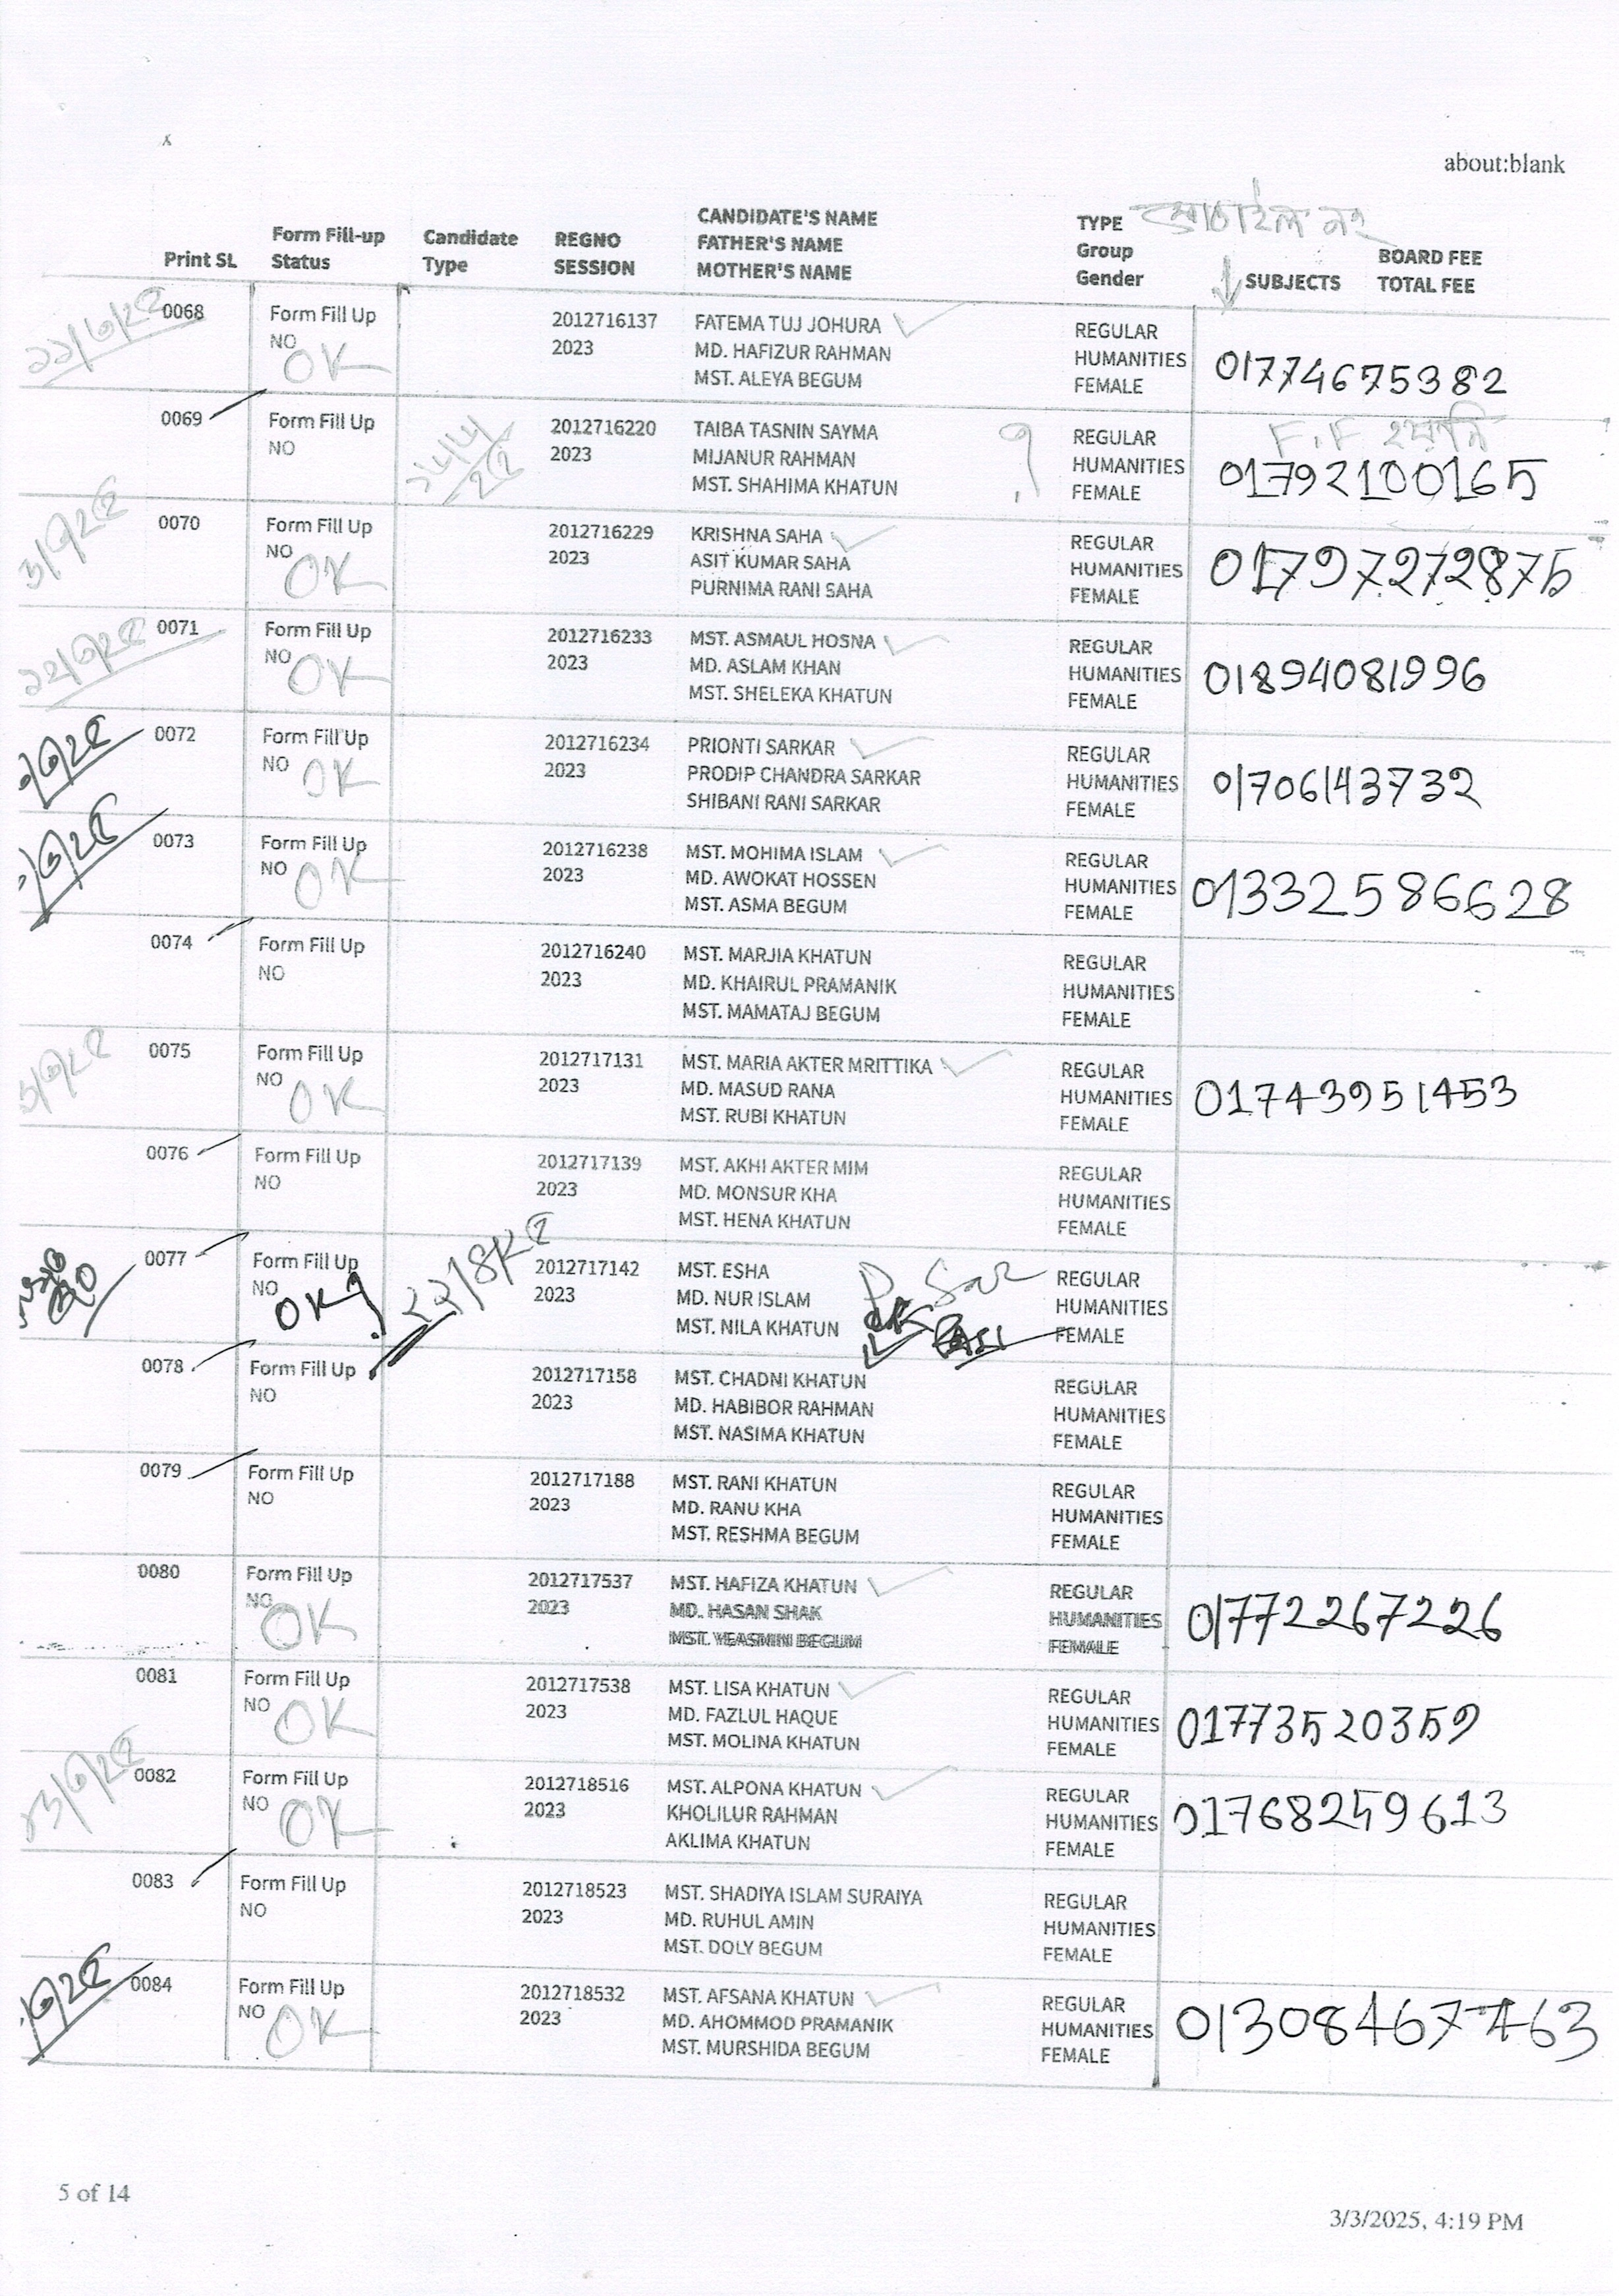 about:blank
মোবাইল নং
Print SL
Form Fill-up
Status
Candidate
Type
REGNO
SESSION
CANDIDATE'S NAME
FATHER'S NAME
MOTHER'S NAME
TYPE
Group
Gender
SUBJECTS
BOARD FEE
TOTAL FEE
0068
Form Fill Up
NO
OK
2012716137
2023
FATEMA TUJ JOHURA
MD. HAFIZUR RAHMAN
MST. ALEYA BEGUM
REGULAR
HUMANITIES
FEMALE
01774675382
0069
Form Fill Up
NO
2012716220
2023
TAIBA TASNIN SAYMA
MIJANUR RAHMAN
MST. SHAHIMA KHATUN
?
REGULAR
HUMANITIES
FEMALE
F.F হয়নি
01792100165
0070
Form Fill Up
NO
OK
2012716229
2023
KRISHNA SAHA
ASIT KUMAR SAHA
PURNIMA RANI SAHA
REGULAR
HUMANITIES
FEMALE
01797272875
0071
Form Fill Up
NO
OK
2012716233
2023
MST. ASMAUL HOSNA
MD. ASLAM KHAN
MST. SHELEKA KHATUN
REGULAR
HUMANITIES
FEMALE
01894081996
0072
Form Fill Up
NO
OK
2012716234
2023
PRIONTI SARKAR
PRODIP CHANDRA SARKAR
SHIBANI RANI SARKAR
REGULAR
HUMANITIES
FEMALE
01706143732
0073
Form Fill Up
NO
OK
2012716238
2023
MST. MOHIMA ISLAM
MD. AWOKAT HOSSEN
MST. ASMA BEGUM
REGULAR
HUMANITIES
FEMALE
01332586628
0074
Form Fill Up
NO
2012716240
2023
MST. MARJIA KHATUN
MD. KHAIRUL PRAMANIK
MST. MAMATAJ BEGUM
REGULAR
HUMANITIES
FEMALE
0075
Form Fill Up
NO
OK
2012717131
2023
MST. MARIA AKTER MRITTIKA
MD. MASUD RANA
MST. RUBI KHATUN
REGULAR
HUMANITIES
FEMALE
01743951453
0076
Form Fill Up
NO
2012717139
2023
MST. AKHI AKTER MIM
MD. MONSUR KHA
MST. HENA KHATUN
REGULAR
HUMANITIES
FEMALE
0077
Form Fill Up
NO
OK
2012717142
2023
MST. ESHA
MD. NUR ISLAM
MST. NILA KHATUN
REGULAR
HUMANITIES
FEMALE
0078
Form Fill Up
NO
2012717158
2023
MST. CHADNI KHATUN
MD. HABIBOR RAHMAN
MST. NASIMA KHATUN
REGULAR
HUMANITIES
FEMALE
0079
Form Fill Up
NO
2012717188
2023
MST. RANI KHATUN
MD. RANU KHA
MST. RESHMA BEGUM
REGULAR
HUMANITIES
FEMALE
0080
Form Fill Up
NO
OK
2012717537
2023
MST. HAFIZA KHATUN
MD. HASAN SHAK
MST. YEASMIN BEGUM
REGULAR
HUMANITIES
FEMALE
01772267226
0081
Form Fill Up
NO
OK
2012717538
2023
MST. LISA KHATUN
MD. FAZLUL HAQUE
MST. MOLINA KHATUN
REGULAR
HUMANITIES
FEMALE
01773520359
0082
Form Fill Up
NO
OK
2012718516
2023
MST. ALPONA KHATUN
KHOLILUR RAHMAN
AKLIMA KHATUN
REGULAR
HUMANITIES
FEMALE
01768259613
0083
Form Fill Up
NO
2012718523
2023
MST. SHADIYA ISLAM SURAIYA
MD. RUHUL AMIN
MST. DOLY BEGUM
REGULAR
HUMANITIES
FEMALE
0084
Form Fill Up
NO
OK
2012718532
2023
MST. AFSANA KHATUN
MD. AHOMMOD PRAMANIK
MST. MURSHIDA BEGUM
REGULAR
HUMANITIES
FEMALE
01308467463
5 of 14
3/3/2025, 4:19 PM